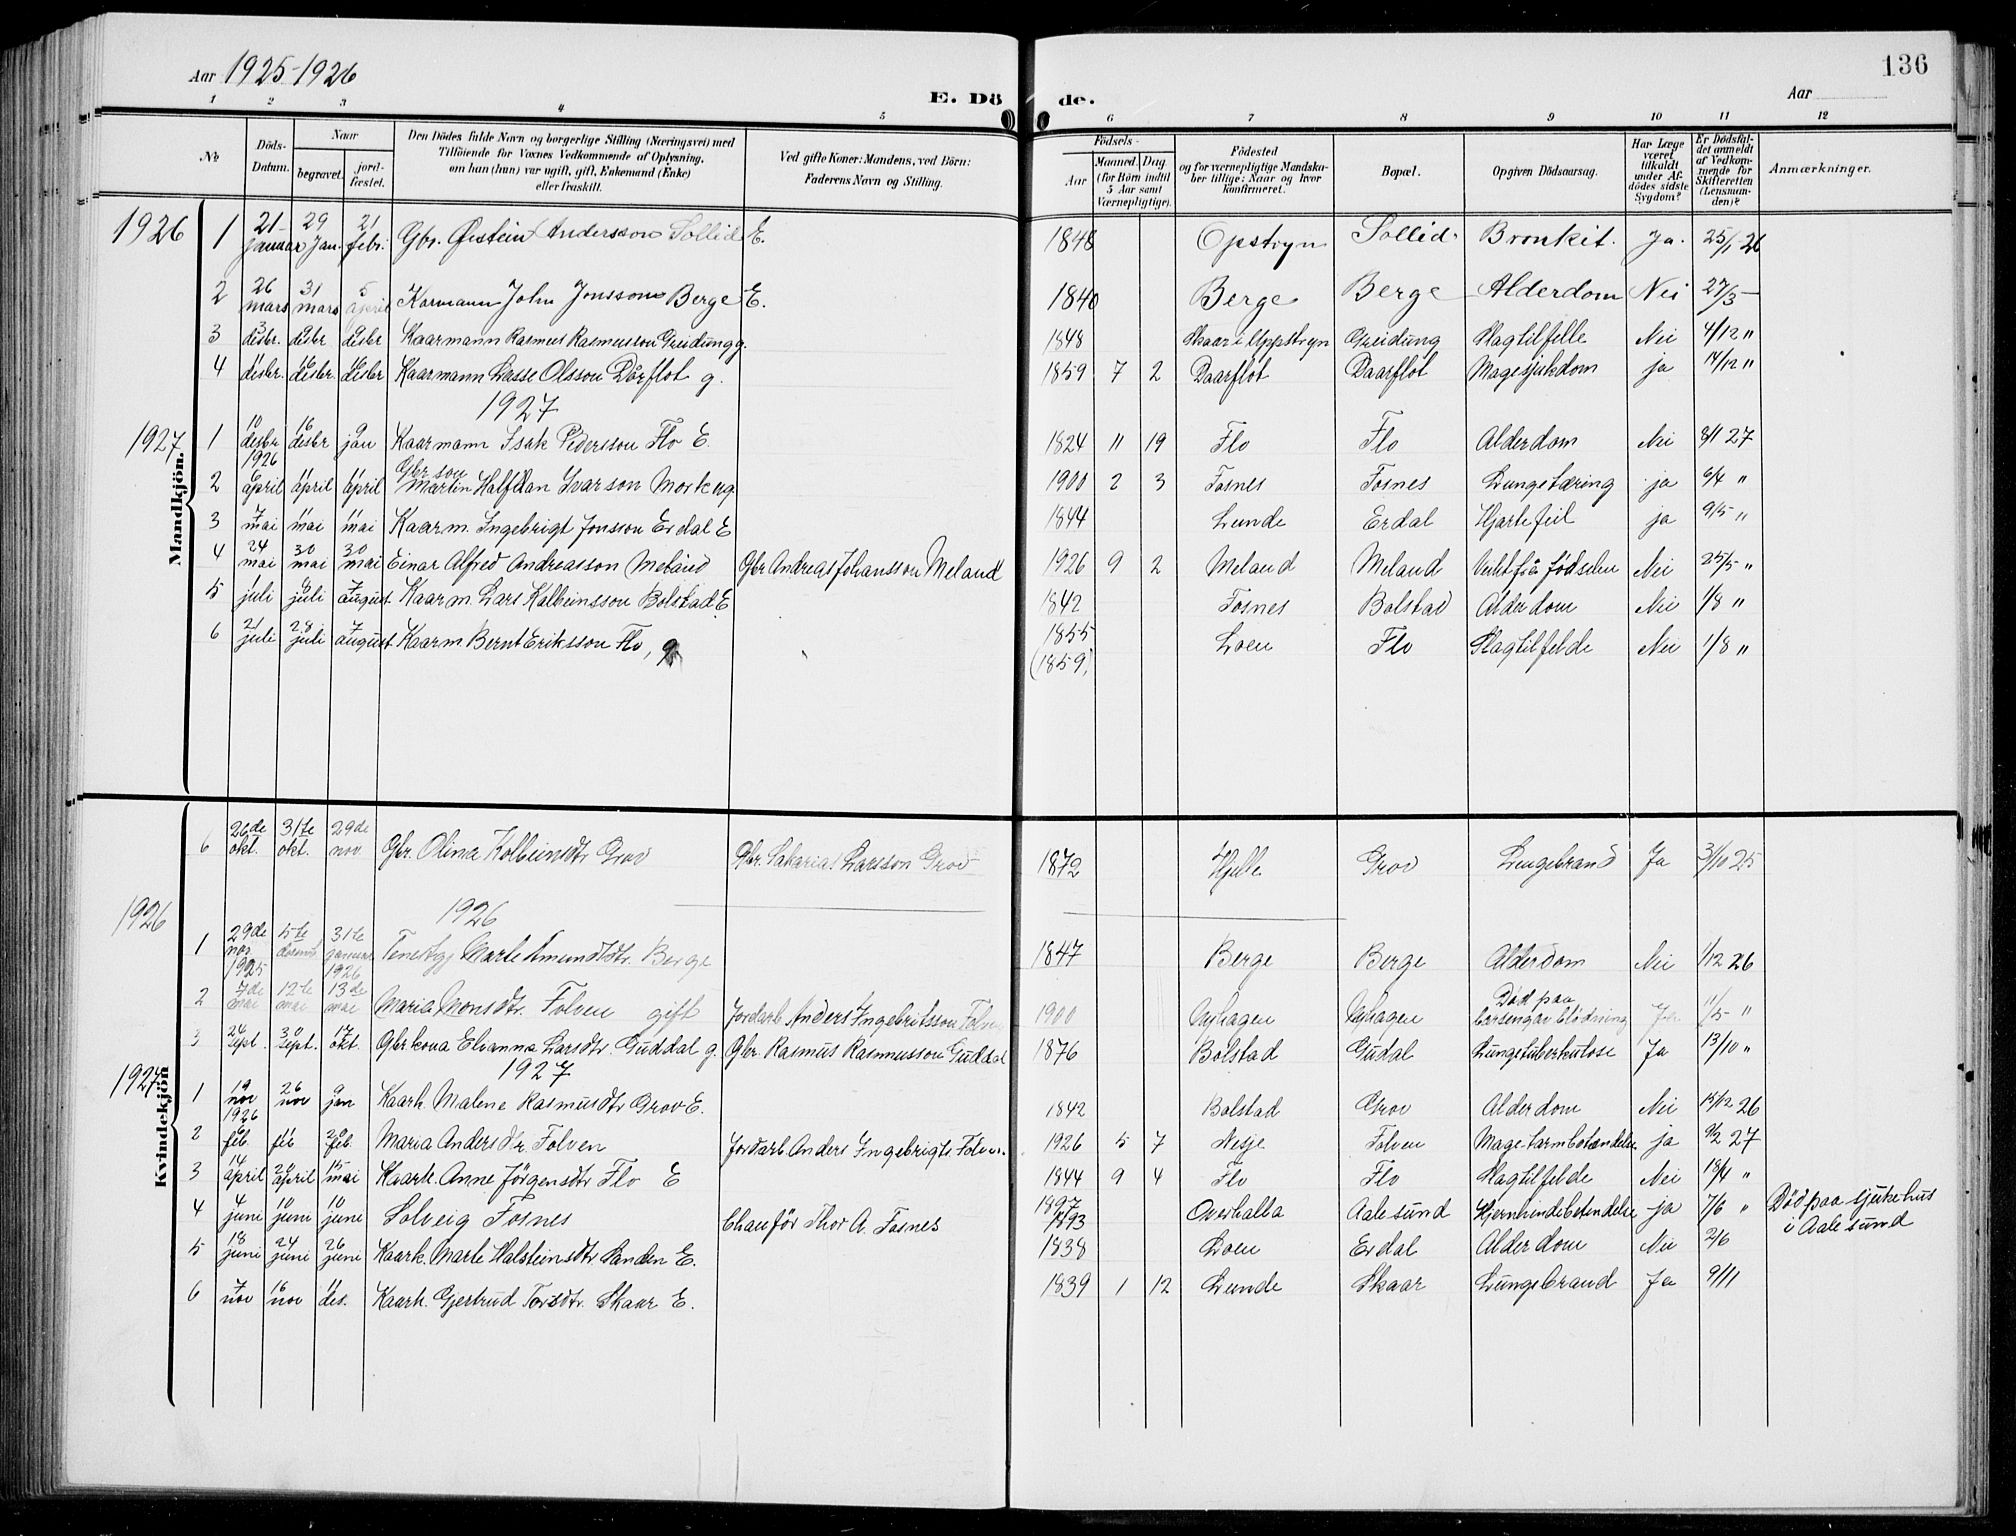 Aar 1925-1926
E. Döde.
136
Aar
1 2 3 4 5 6 7 8 9 10 11 12
No
Döds-Datum.
Naar
begravet.
jord-fæstet.
Den Dödes fulde Navn og borgerlige Stilling (Næringsvei) med
Tilföiende for Voxnes Vedkommende af Oplysning,
om han (hun) var ugift, gift, Enkemand (Enke)
eller fraskilt.
Ved gifte Koner: Mandens, ved Börn:
Faderens Navn og Stilling.
Födsels-
Aar
Maaned. Dag
(for Börn indtil
5 Aar samt
Værnepligtige).
Födested
og for værnepligtige Mandska-
ber tillige: Naar og hvor
konfirmeret.
Bopæl.
Opgiven Dödsaarsag.
Har Læge
været
tilkaldt
under Af-
dödes sidste
Sygdom?
Er Dödsfal-
det anmeldt
af Vedkom-
mende for
Skifteretten
(Lensman-
den)?
Anmærkninger.
Mandkjön.
1926 1 21 januar 29 Jan. 21 febr. Gbr. Øistein Andersson Sollid E. 1848 Opstryn Sollid Bronkit. Ja. 25/1 26
2 26 mars 31 mars 5 april Karmann John Jonsson Berge E. 1840 Berge Berge Alderdom Nei 27/3 –
3 3 desbr. 9 desbr 9 desbr Kaarmann Rasmus Rasmusson Greidung g. 1848 Skaar i Uppstryn Greidung Slagtilfelle Nei 4/12 "
4 11 desbr. 16 desbr. 16 desbr Kaarmann Lasse Olsson Dårflot g. 1859 7 2 Daarflot Daarflot Magesjukdom ja 14/12 "
1927
1927 1 10 desbr 1926 16 desbr 9 jan Kaarmann Isak Pedersson Flo E. 1824 11 19 Flo Flo Alderdom Nei 8/1 27
2 6 april 11 april 11 april Gbr son Martin Halfdan Ivarson Mork ug. 1900 2 3 Fosnes Fosnes Lungetæring ja 6/4 "
3 7 mai 11 mai 11 mai Kaarm. Ingebrigt Jonsson Erdal E 1844 Lunde Erdal Hjartefeil ja 9/5 "
4 24 mai 30 mai 30 mai Einar Alfred Andreasson Meland Gbr Andreas Johansson Meland 1926 9 2 Meland Meland Veikt frå fødselen Nei 25/5 "
5 1 juli 9 juli 7 august Kaarm. Lars Kolbeinsson Bolstad E 1842 Fosnes Bolstad Alderdom Nei 1/8 "
6 21 juli 28 juli 7 august Kaarm. Bernt Eriksson Flo, g 1855 (1859) Loen Flo Slagtilfelde Nei 1/8 "
Kvindekjön
6 26de okt. 31te okt. 29de nov. Gbr. Olina Kolbeinsdtr Grov Gbr. Sakarias Larsson Grov 1872 Hjelle Grov Lungebrand Ja 3/10 25
1926
1926 1 29de nov 1925 5te 31te januar 1926 Marte Amundsdtr. Berge 1847 Berge Berge Alderdom Nei 1/12 26
2 7de mai 12te mai 13de mai Maria Monsdtr. Folven gift Jordarb Anders Ingebritsson Folven 1900 Nyhagen Nyhagen Død paa barseng av blødning Ja 11/5 "
3 24 sept. 30 sept. 17 okt. Gbrkona Elianna Larsdtr. Guddal g. Gbr. Rasmus Rasmusson Guddal 1876 Bolstad Gudal Lungetuberkulose Ja 13/10 "
1927
1927 1 19 nov 1926 26 nov 9 jan Kaark. Malene Rasmusdtr Grov E. 1842 Bolstad Grov Alderdom Nei 15/12 26
2 6 feb. 11 20 feb. Maria Andersdtr. Folven Jordarb Anders Ingebrigts Folven. 1926 5 7 Nesje Folven Mage tarmbetendelse ja 9/2 27
3 14 april 20 april 15 mai Kaark. Anne Jörgensdtr Flo E 1844 9 4 Flo Flo Slagtilfelde Nei 18/4 "
4 4 juni 10 juni 10 juni Solveig Fosnes Chauför Thor A. Fosnes 1897 1893 Overhalla Aalesund Hjernhindebetendelse ja 7/6 " Død paa sjukehus i Aalesund
5 18 juni 24 juni 26 juni Kaark. Marte Halsteinsdtr Sanden E. 1838 Loen Erdal Alderdom Nei 2/6
6 7 nov 16 nov 11 des. Kaark. Gjertrud Torsdtr. Skaar E. 1839 1 12 Lunde Skaar Lungebrand Ja 9/11